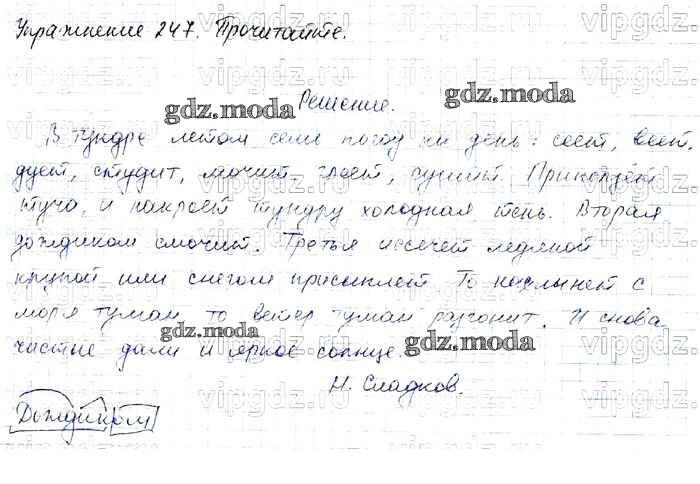 Упражнение 247. Прочитайте.
Решение.
В тундре летом семь погод на день: сеет, веет,
дует, студит, мочит, греет, сушит. Приползёт
туча, и накроет тундру холодная тень. Вторая
дождиком смочит. Третья иссечет ледяной
крупой или снегом присыплет. То нахлынет с
моря туман, то ветер туман разгонит. И снова
чистые дали и яркое солнце.
Н. Сладков.
Дождиком
gdz.moda
gdz.moda
gdz.moda
gdz.moda
vipgdz